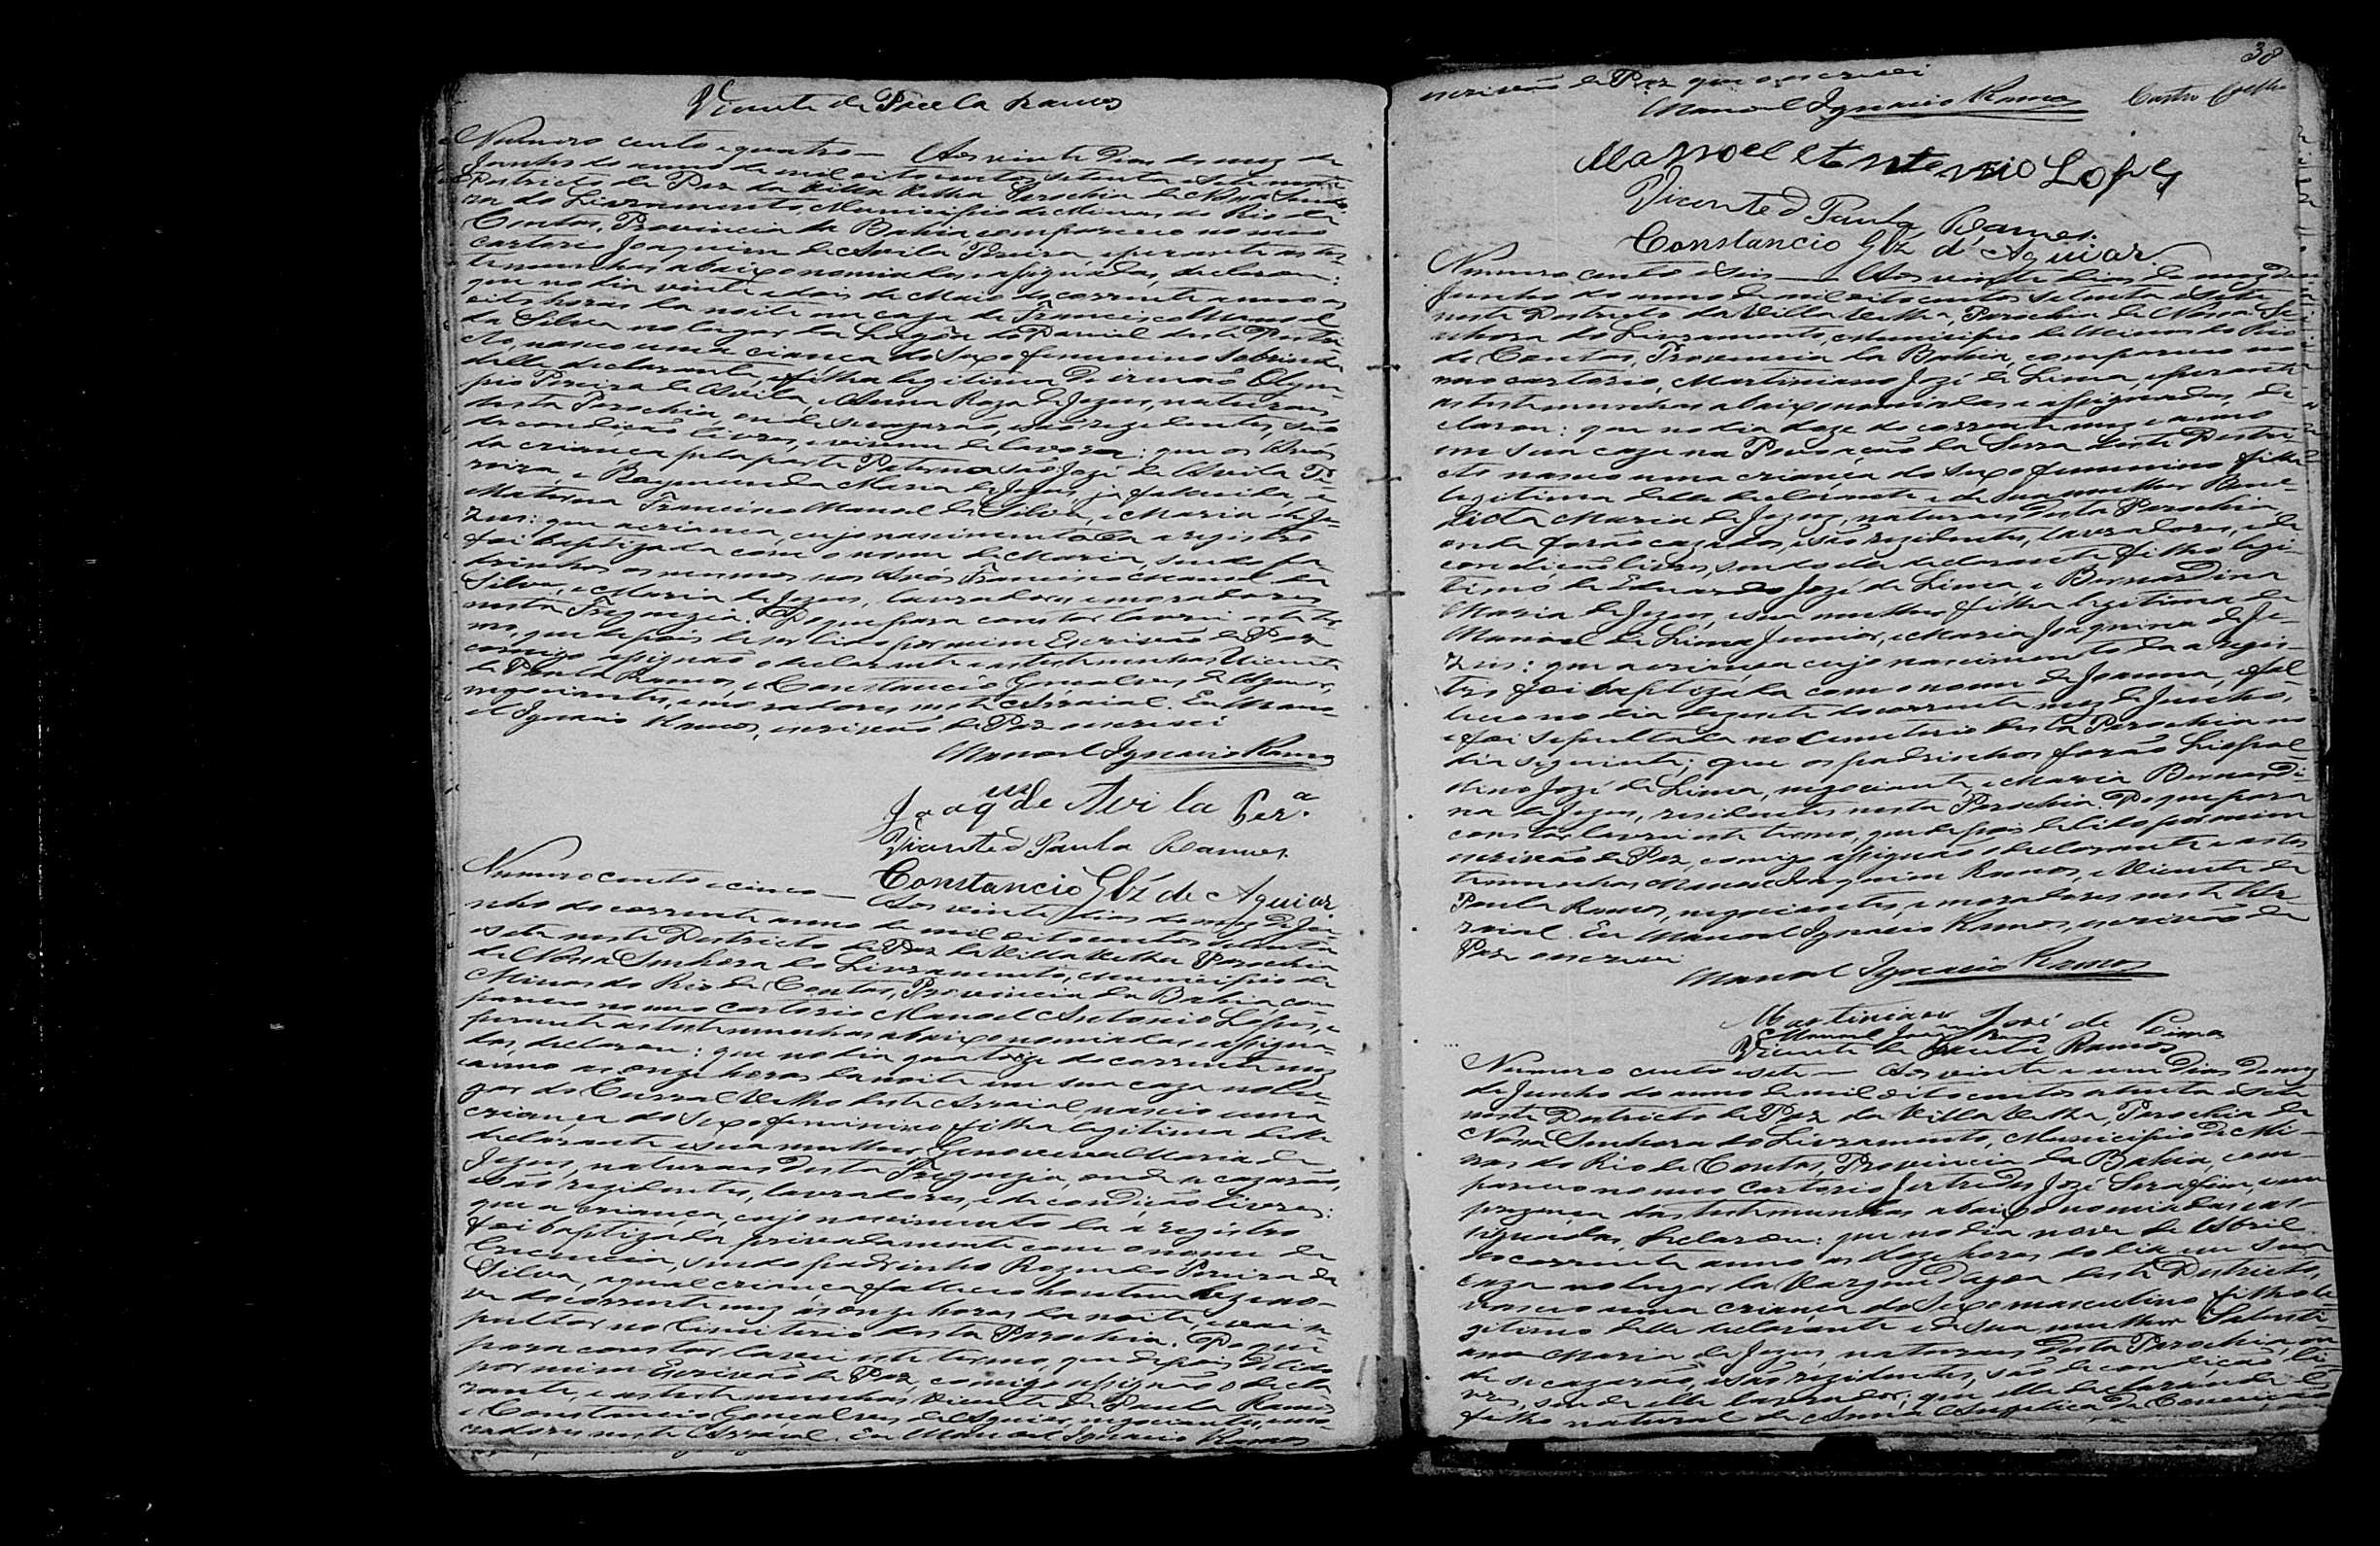 Vicente de Paula Ramos
Numero cento e quatro — Aos vinte dias do mez de
Junho do anno de mil oito centos setenta e sete neste
Districto de Paz da Villa Velha Parochia de Nossa Senho-
ra do Livramento, Municipio de Minas do Rio de
Contas, Provincia da Bahia, compareceo no meu
cartorio Joaquim de Avila Pereira, e perante as tes-
temunhas abaixo nomiadas e assignadas, declarou:
que no dia vinte e dois de Maio do corrente anno as
oito horas da noite em caza de Francisco Manoel
da Silva no lugar da Lagôa do deste Distri-
cto, nasceo uma criança do sexo femenino Sobrinha
delle declarante, e filha legitima de irmaõ Olym-
pio Pereira de Avila, e Anna Roza de Jezus, naturaes
desta Parochia, onde se cazaraõ, e saõ rezidentes, saõ
de condiçaõ livres, e vivem de lavora: que os Avós
da criança pela parte Paterna saõ Jozé de Avila Pe-
reira, e Raymunda Maria de Jezus, ja falecida, e
Materna Francisco Manoel da Silva, e Maria de Je-
zus: que a criança, cujo nascimento da a registro
foi baptizada com o nome de Maria, sendo pa-
drinhos os mesmos seus Avós Francisco Manoel da
Silva, e Maria de Jezus, lavradores e moradores
nesta Freguezia. Do que para constar lavrei este ter-
mo, que depois de ser lido por mim Escrivaõ de Paz
comigo assignaõ o declarante e as testemunhas Vicente
de Paula Ramos, e Constancio Gonçalves de Aguiar,
negociantes, e moradores neste Arraial. Eu Mano-
el Ignacio Ramos, escrivaõ de Paz o escrevi
Manoel Ignacio Ramos
Joaqm de Avila Per.a
Vicente d Paula Ramos.
Constancio Glz de Aguiar.
Numero cento e cinco — Aos vinte dias do mez de Ju-
nho do corrente anno de mil oitocentos setenta
e sete neste Districto de Paz da Villa Velha Parochia
de Nossa Senhora do Livramento, Municipio de
Minas do Rio de Contas, Provincia da Bahia, com-
pareceo no meu cartorio Manoel Antonio Lopes, e
perante as testemunhas abaixo nomiadas e assigna-
das, declarou: que no dia quatorze do corrente mez
e anno as onze horas da noite em sua caza no lu-
gar do Curral Velho deste Arraial nasceo uma
criança do sexo femenino filha legitima delle
declarante e sua mulher Genoveva Maria de
Jezus, naturaes desta Freguezia, onde se cazaraõ,
e saõ rezidentes, lavradores, e de condiçaõ livres:
que a criança, cujo nascimento da a registro
foi baptizada privadamente com o nome de
sendo padrinho Rozendo Pereira da
Silva, a qual criança falleceo hontem dezeno-
ve do corrente mez as onze horas da noite, e vai se-
pultar no Cimiterio desta Parochia. Do que
para constar lavrei este termo, que depois d lido
por mim Escrivaõ de Paz, comigo assignaõ o decla-
rante, e as testemunhas Vicente de Paula Ramos
e Constancio Gonçalves de Aguiar, negociantes, e mo-
radores neste Arraial. Eu Manoel Ignacio Ramos
38
escrivaõ de Paz que o escrevi
Manoel Ignacio Ramos
Castro Coelho
Manoel Antonio Lopes
Vicente d Paula Ramos.
Constancio Glz d' Aguiar
Numero cento e seis — Aos vinte dias do mez de
Junho do anno de mil oitocentos setenta e sete
neste Districto da Villa Velha, Parochia de Nossa Se-
nhora do Livramento, Municipio de Minas do Rio
de Contas, Provincia da Bahia, compareceo no
meu cartorio, Martiniano Jozé de Lima, e perante
as testemunhas abaixo nomiadas e assignadas, de-
clarou: que no dia doze do corrente mez e anno
em sua caza na Povoaçaõ da Serra deste Distri-
cto nasceo uma criança do sexo femenino filha
legitima delle declarante e de sua mulher Bene-
dicta Maria de Jezus, naturaes desta Parochia,
onde foraõ cazados, e saõ rezidentes, lavradores, e de
condiçaõ livres, sendo elle declarante filho legi-
timo de Eduardo Jozé de Lima, e Bernardina
Maria de Jezus, e sua mulher filha legitima de
Manoel de Lima Junior, e Maria Joaquina de Je-
zus: que a criança cujo nascimento da a regis-
tro foi baptizada com o nome de Joanna, e fal-
leceo no dia dezesete do corrente mez de Junho,
e foi sepultada no Cemeterio desta Parochia no
dia seguinte; que os padrinhos foraõ
dino Jozé de Lima, negociante, e Maria Bernardi-
na de Jezus, residentes nesta Parochia. Do que para
constar lavrei este termo, que depois de lido por mim
escrivaõ de Paz, comigo assignaõ o declarante e as tes-
temunhas Manoel Joaquim Ramos, e Vicente de
Paula Ramos, negociantes, e moradores neste Ar-
raial. Eu Manoel Ignacio Ramos, escrivaõ de
Paz o escrevi
Manoel Ignacio Ramos
Martiniano José de Lima
Manoel Joaqm Ramos
Vicente de Paula Ramos
Numero cento e sete — Aos vinte e um dias do mez
de Junho do anno de mil oito centos setenta e sete
neste Districto de Paz da Villa Velha, Parochia de
Nossa Senhora do Livramento, Municipio de Mi-
nas do Rio de Contas, Provincia da Bahia, com-
pareceo no meu Cartorio Jertrudes Jozé Serafim, e em
prezença das testemunhas abaixo nomiadas e as-
signadas, declarou: que no dia nove de Abril
do corrente anno as doze horas do dia em sua
caza no lugar da Vargem Dagoa deste Districto,
nasceo uma criança do sexo masculino filho le-
gitimo delle declarante e de sua mulher Salusti-
ana Maria de Jezus, naturaes desta Parochia, on-
de se cazaraõ, e saõ rezidentes, saõ de condiçaõ li-
vres, sendo elle lavrador; que elle declarante é
filho natural de Anna Angelica da Conceiçaõ